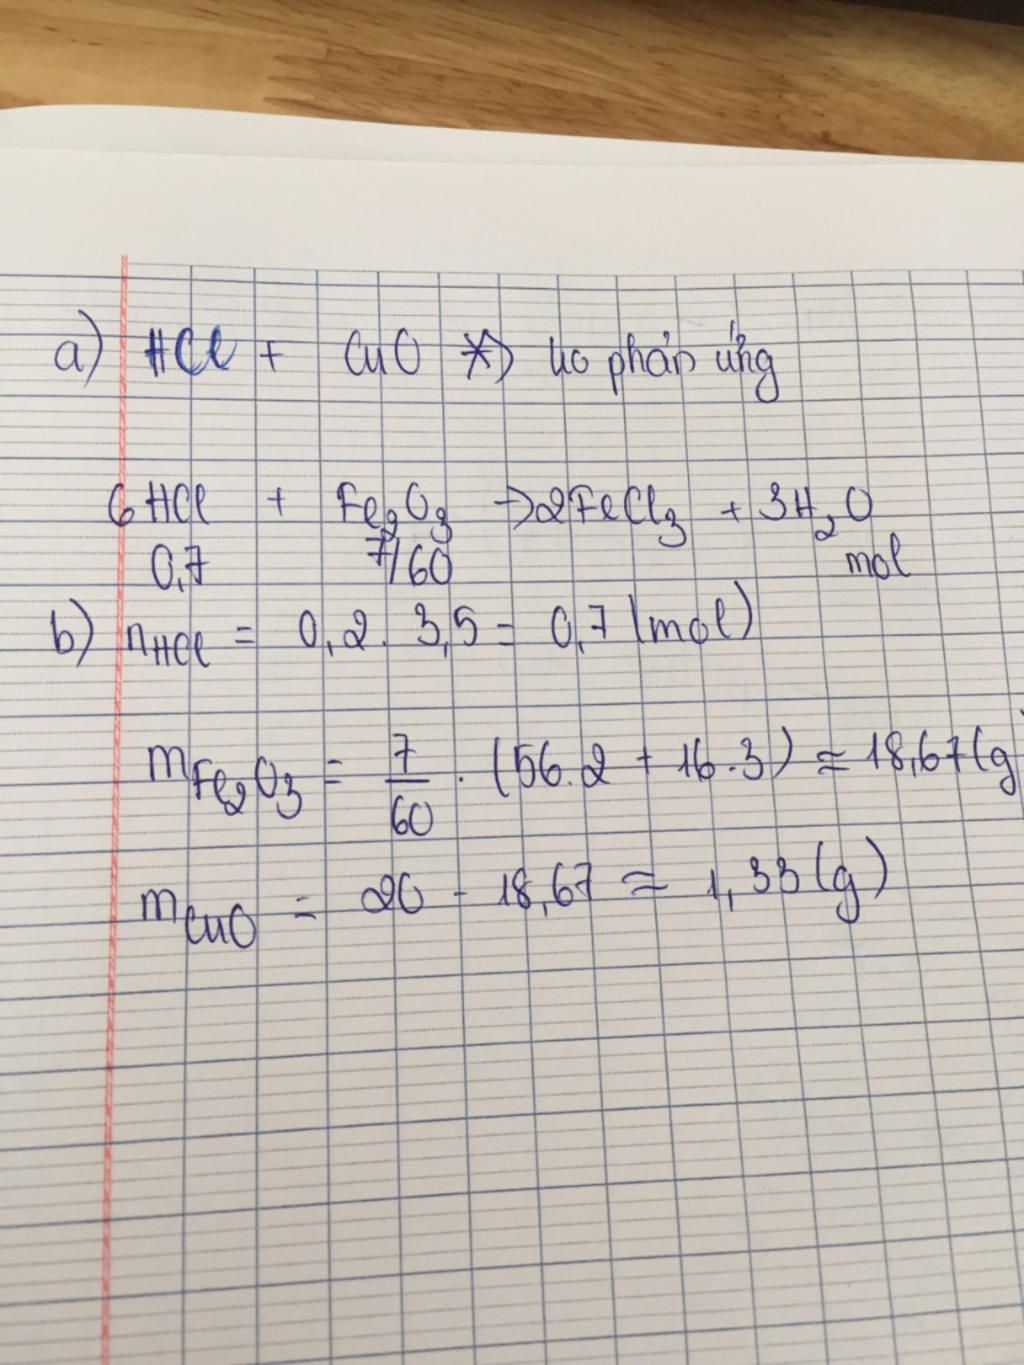 a) HCl + CuO *) ko phản ứng
6HCl + Fe₂O₃ → 2FeCl₃ + 3H₂O
0,7 7/60 mol
b) nHCl = 0,2 . 3,5 = 0,7 (mol)
mFe₂O₃ = 7/60 . (56.2 + 16.3) ≈ 18,67 (g
mCuO = 20 - 18,67 ≈ 1,33 (g)